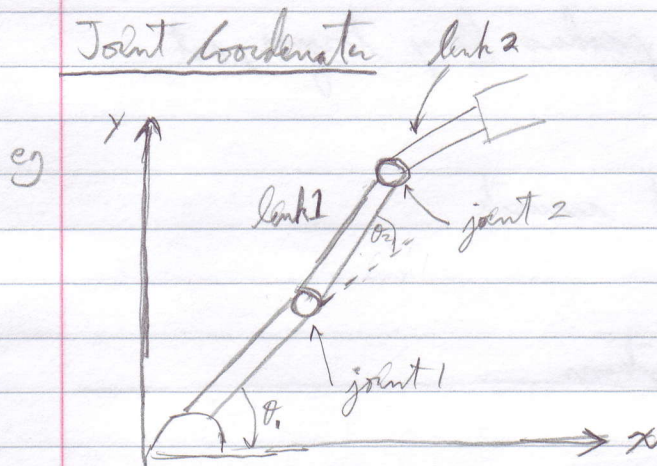 Joint Coordinates
link 2
Y
eg
link 1
θ2
joint 2
joint 1
θ1
x